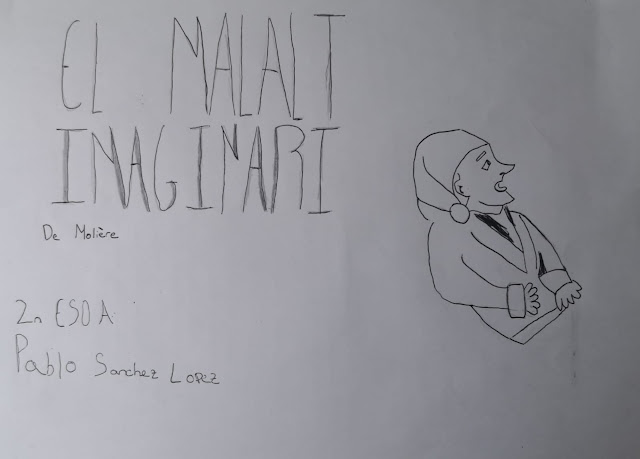 EL MALALT
IMAGINARI
De Molière
2n ESO A
Pablo Sanchez Lopez